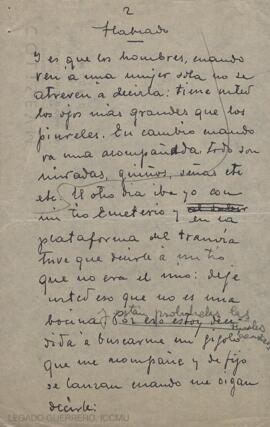 2
Hablado
Y es que los hombres, cuando
ven a una mujer sola no se
atreven a decirla: tiene usted
los ojos más grandes que los
pinreles. En cambio cuando
va una acompañada todo son
miradas, guiños, señas etc
etc. El otro dia iba yo con
mi tio Emeterio y en la
plataforma del tranvia
tuve que decirle a un tio
que no era el mio: deje
usted eso que no es una
bocina y están prohibidas las
Por eso estoy deci-
dida a buscarme un gigolo
que me acompañe y de fijo
se lanzan cuando me oigan
decirle:
LEGADO GUERRERO. ICCMU